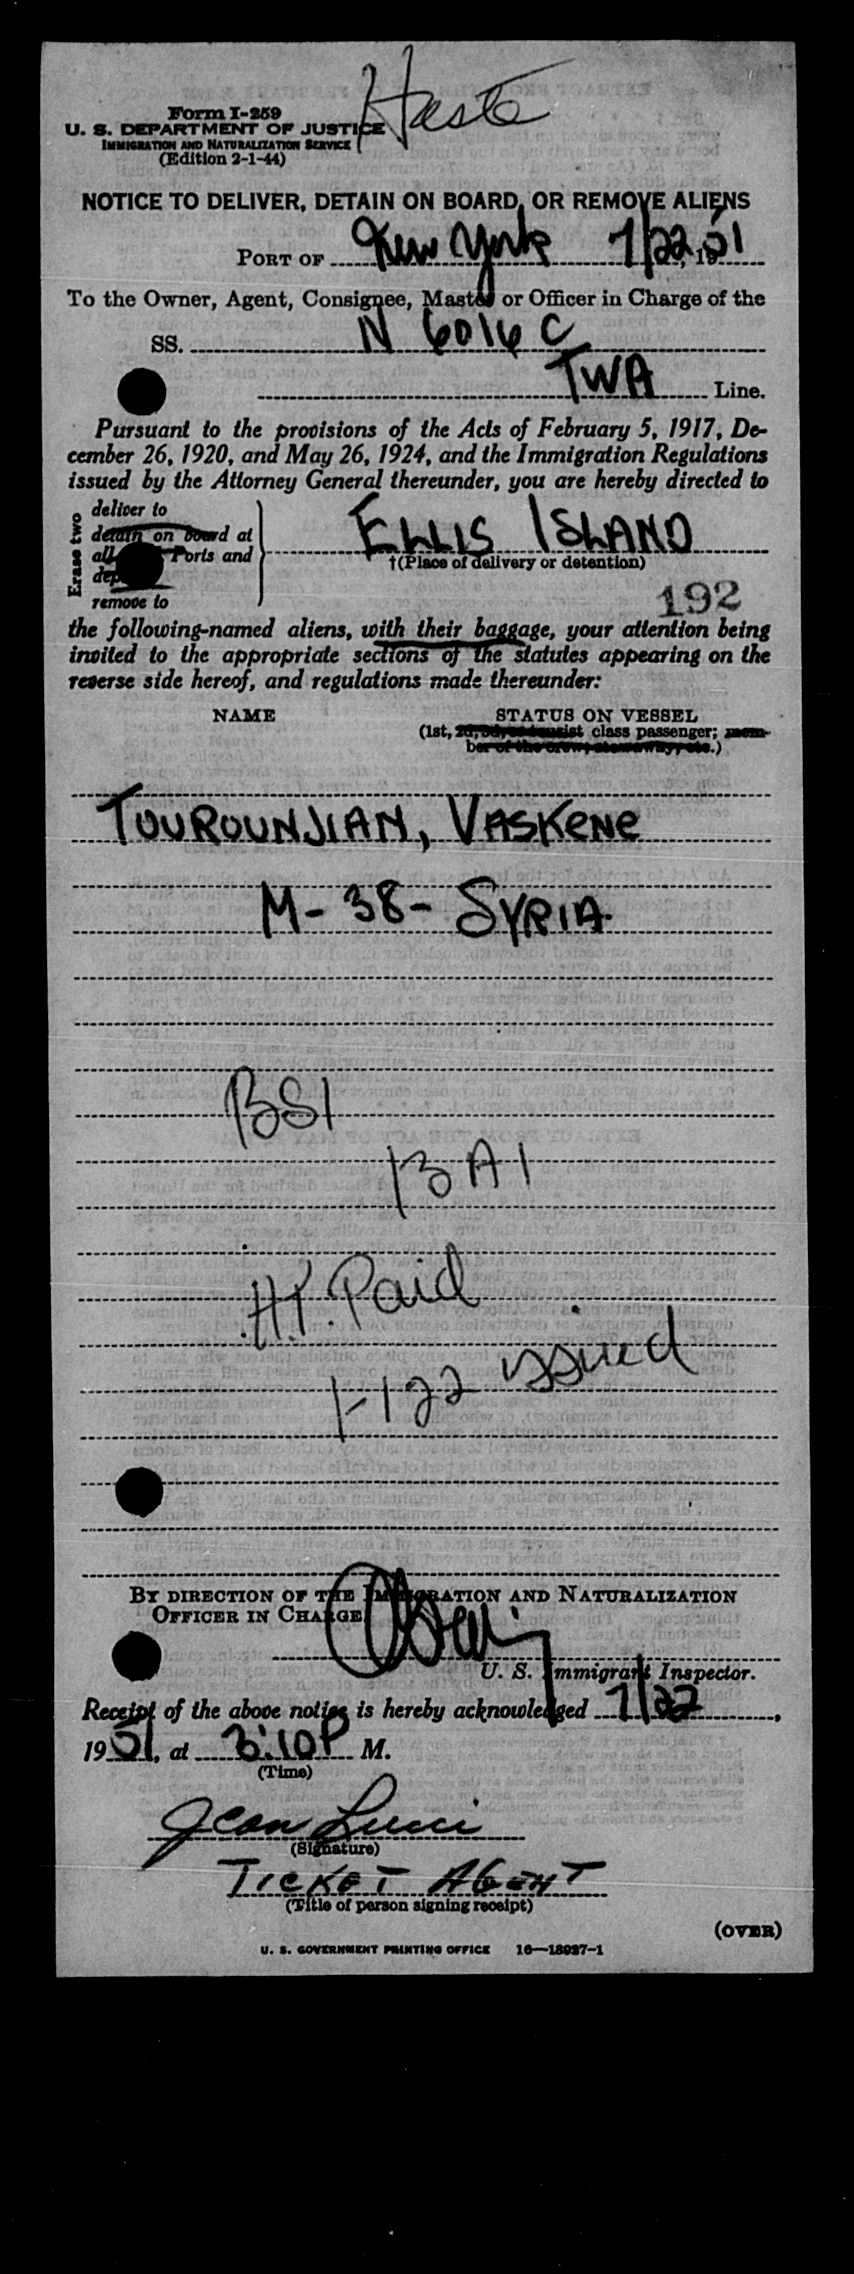 Haste
Form I-259
U. S. DEPARTMENT OF JUSTICE
IMMIGRATION AND NATURALIZATION SERVICE
(Edition 2-1-44)
NOTICE TO DELIVER, DETAIN ON BOARD, OR REMOVE ALIENS
PORT OF New York 7/22, 1951
To the Owner, Agent, Consignee, Master or Officer in Charge of the
SS. N 6016 C
TWA Line.
Pursuant to the provisions of the Acts of February 5, 1917, De-
cember 26, 1920, and May 26, 1924, and the Immigration Regulations
issued by the Attorney General thereunder, you are hereby directed to
Erase two
deliver to
detain on board at
all Ports and
remove to
ELLIS ISLAND
†(Place of delivery or detention)
192
the following-named aliens, with their baggage, your attention being
invited to the appropriate sections of the statutes appearing on the
reverse side hereof, and regulations made thereunder:
NAME STATUS ON VESSEL
(1st, class passenger; mem-
ber of the crew, stowaway, etc.)
TOUROUNJIAN, VASKENE
M - 38 - SYRIA.
BSI
BA1
H.T. Paid
1-122 issued
BY DIRECTION OF THE IMMIGRATION AND NATURALIZATION
OFFICER IN CHARGE
U. S. Immigrant Inspector.
Receipt of the above notice is hereby acknowledged 7/22,
1951, at 3:10 P M.
(Time)
Jean Lucci
(Signature)
TICKET AGENT
(Title of person signing receipt)
(OVER)
U. S. GOVERNMENT PRINTING OFFICE 16—18927-1